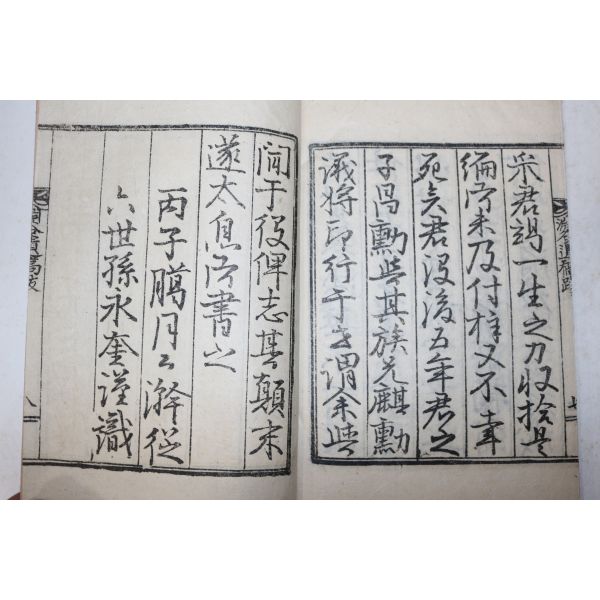 采君竭一生之力收拾是
編而未及付梓又不幸
死矣君沒後五年君之
子昌勳與其族兄麒勳
議將印行于世謂余與
聞于役俾志其顚末
遂太息而書之
丙子臘月之澣從
六世孫永奎謹識
八